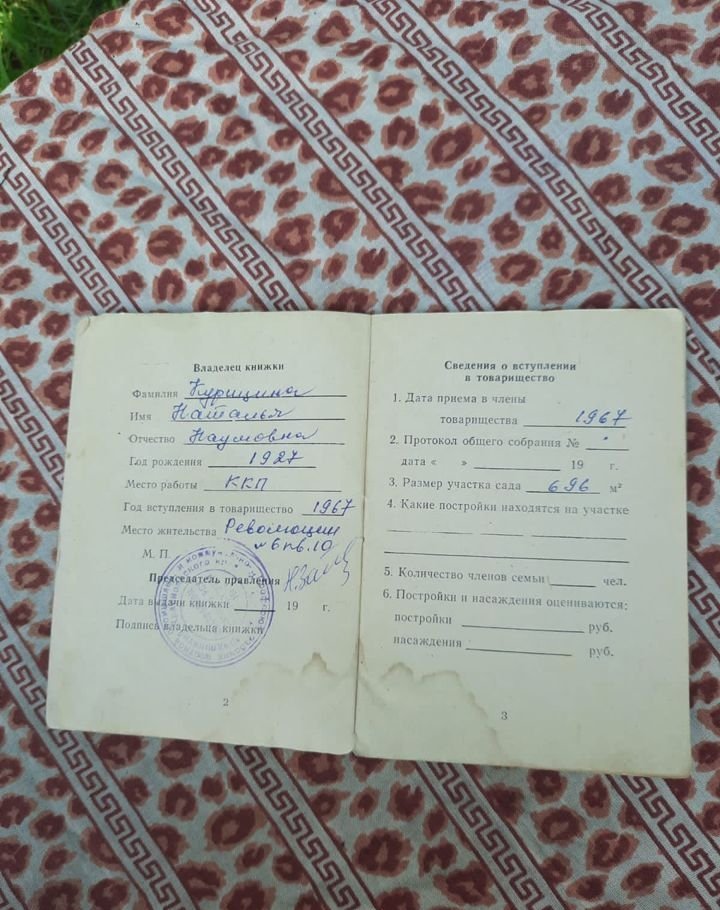 Владелец книжки
Фамилия Курицина
Имя Наталья
Отчество Наумовна
Год рождения 1927
Место работы ККП
Год вступления в товарищество 1967
Место жительства Революции
6 кв. 10
М. П.
Председатель правления
Дата выдачи книжки 19 г.
Подпись владельца книжки
2
Сведения о вступлении
в товарищество
1. Дата приема в члены
товарищества 1967
2. Протокол общего собрания №
дата « » 19 г.
3. Размер участка сада 696 м²
4. Какие постройки находятся на участке
5. Количество членов семьи чел.
6. Постройки и насаждения оцениваются:
постройки руб.
насаждения руб.
3